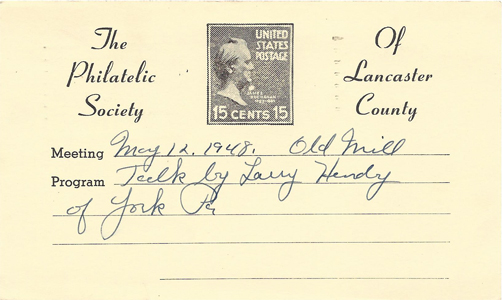 The Philatelic Society
UNITED STATES POSTAGE
JAMES BUCHANAN
1857-1861
15 CENTS 15
Of Lancaster County
Meeting May 12, 1948. Old Mill
Program Talk by Larry Hendy
of York Pa